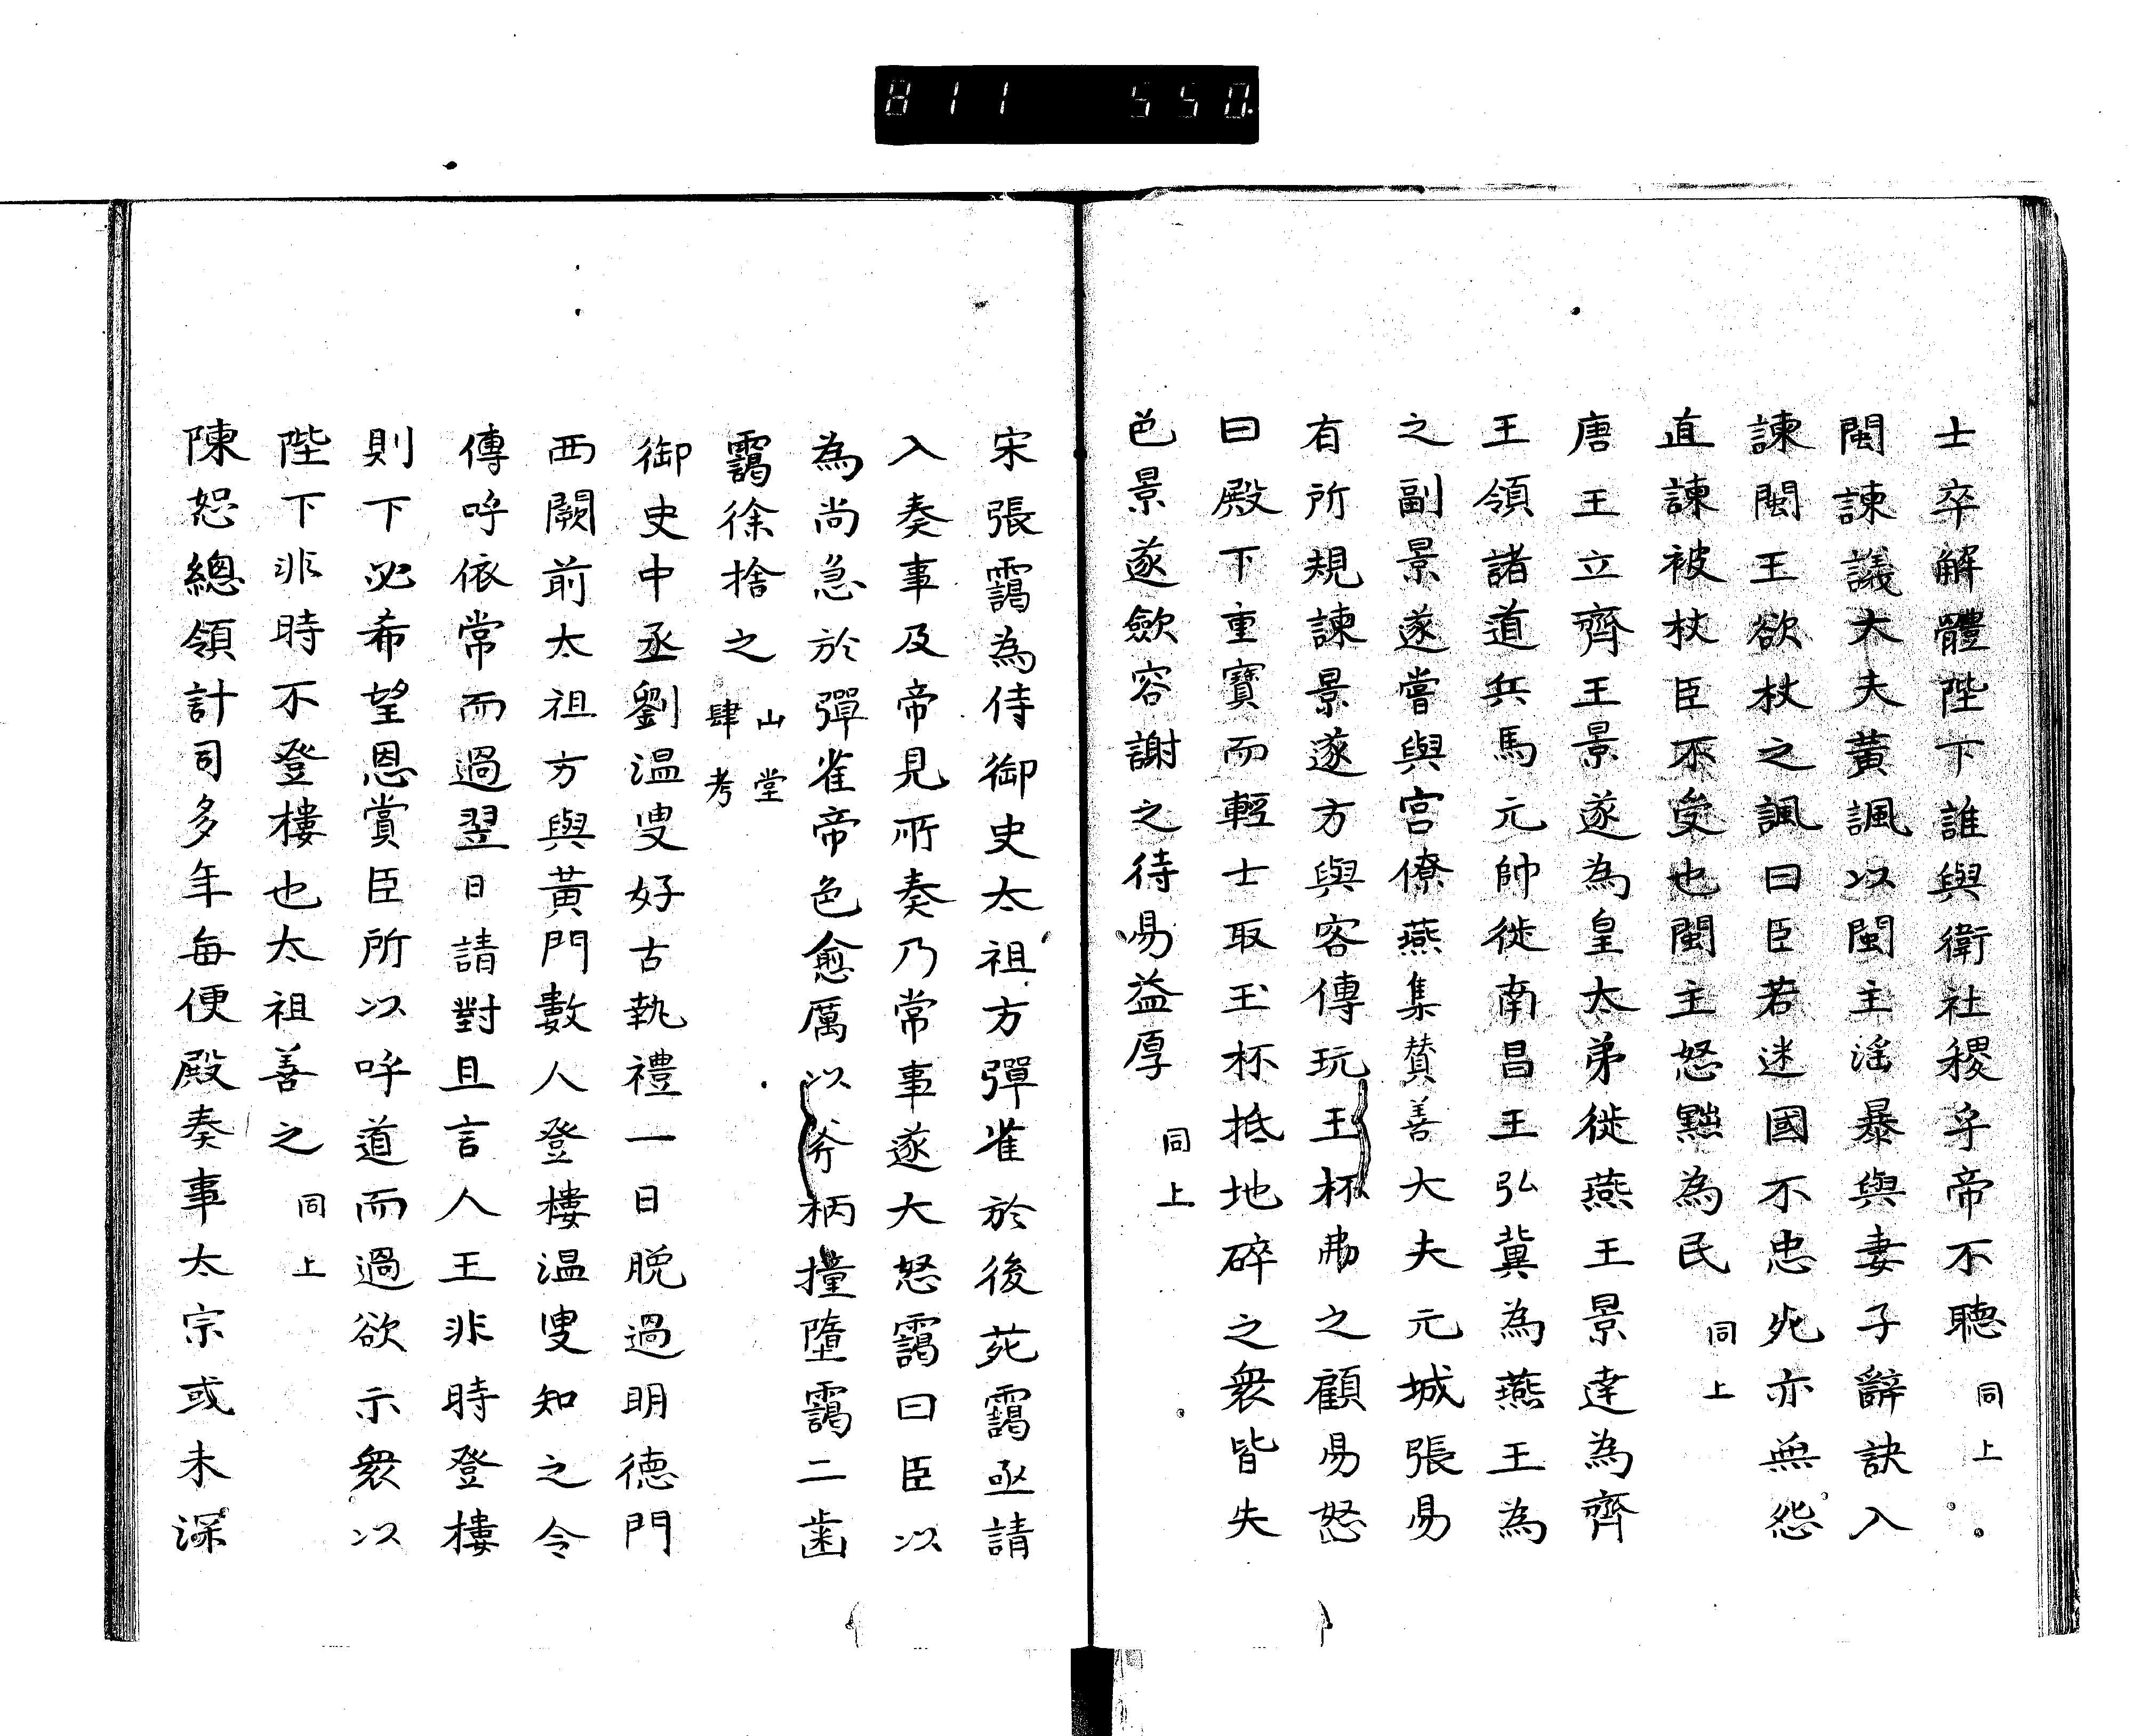 811 550.
士卒解體陛下誰與衛社稷乎帝不聽 同上
閩諫議大夫黃諷以閩主淫暴與妻子辭訣入
諫閩王欲杖之諷曰臣若迷國不忠死亦無怨
直諫被杖臣不受也閩主怒黜為民 同上
唐王立齊王景遂為皇太弟徙燕王景達為齊
王領諸道兵馬元帥徙南昌王弘冀為燕王為
之副景遂嘗與宮僚燕集賛善大夫元城張易
有所規諫景遂方與客傳玩玉杯弗之顧易怒
曰殿下重寶而輕士取玉杯抵地碎之衆皆失
色景遂歛容謝之待易益厚 同上
宋張靄為侍御史太祖方彈雀於後苑靄亟請
入奏事及帝見所奏乃常事遂大怒靄曰臣以
為尚急於彈雀帝色愈厲以斧柄撞墮靄二齒
靄徐捨之 山堂肆考
御史中丞劉温叟好古執禮一日脱過明德門
西闕前太祖方與黃門數人登樓温叟知之令
傳呼依常而過翌日請對且言人王非時登樓
則下必希望恩賞臣所以呼道而過欲示衆以
陛下非時不登樓也太祖善之 同上
陳恕總領計司多年每便殿奏事太宗或未深